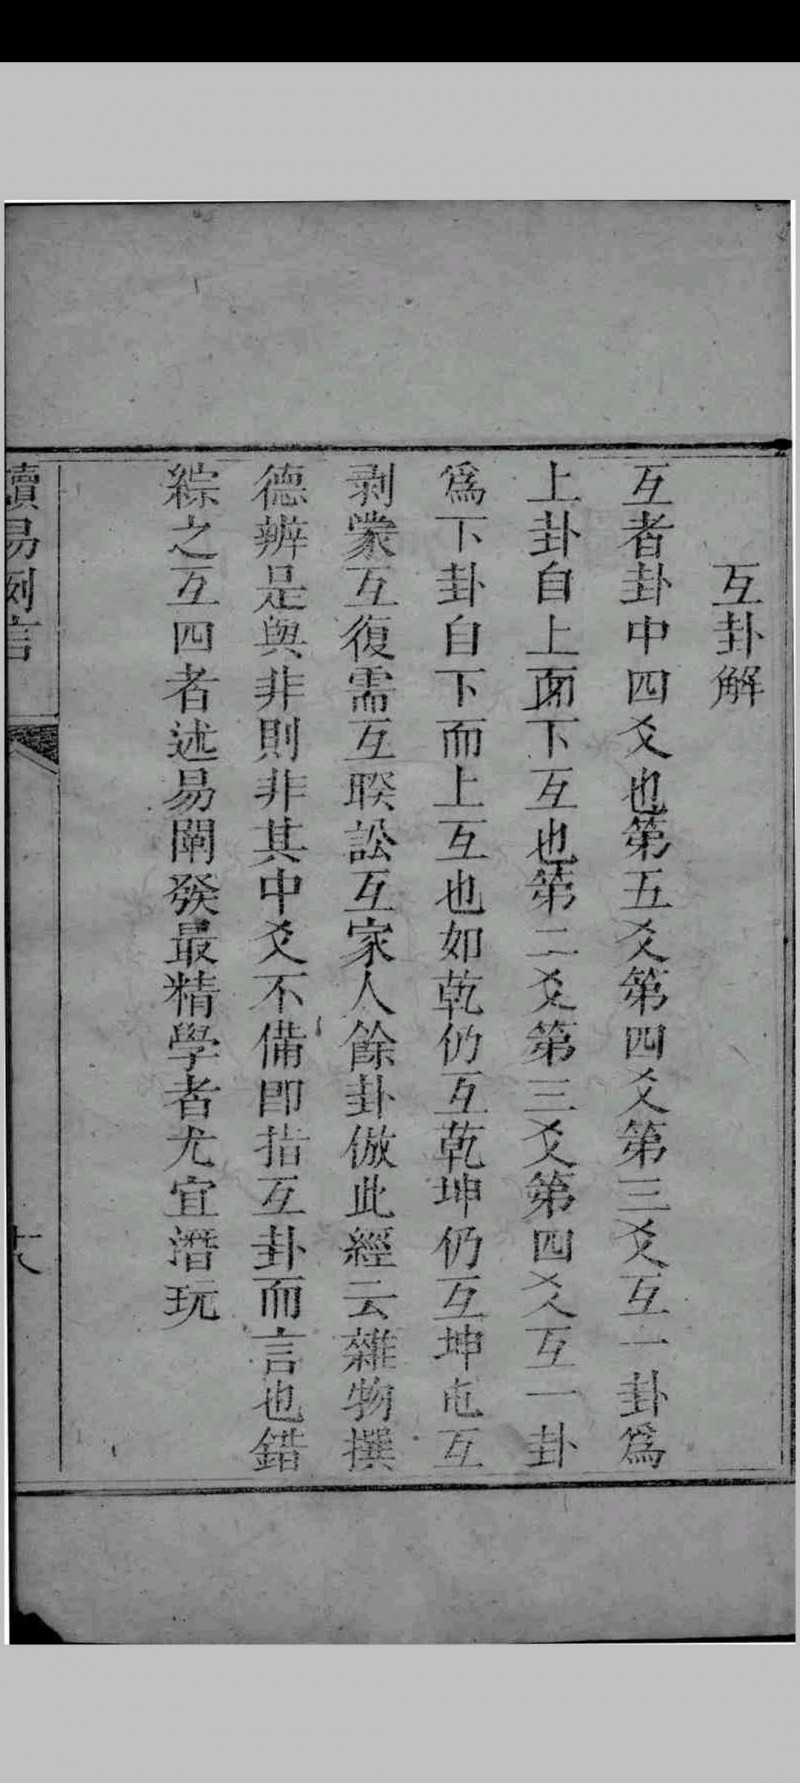 互卦解
互者卦中四爻也第五爻第四爻第三爻互一卦爲
上卦自上而下互也第二爻第三爻第四爻互一卦
爲下卦自下而上互也如乾仍互乾坤仍互坤屯互
剥蒙互復需互睽訟互家人餘卦倣此經云雜物撰
德辨是與非則非其中爻不備卽指互卦而言也錯
綜之互四者述易闡發最精學者尤宜潛玩
讀易例言
十八